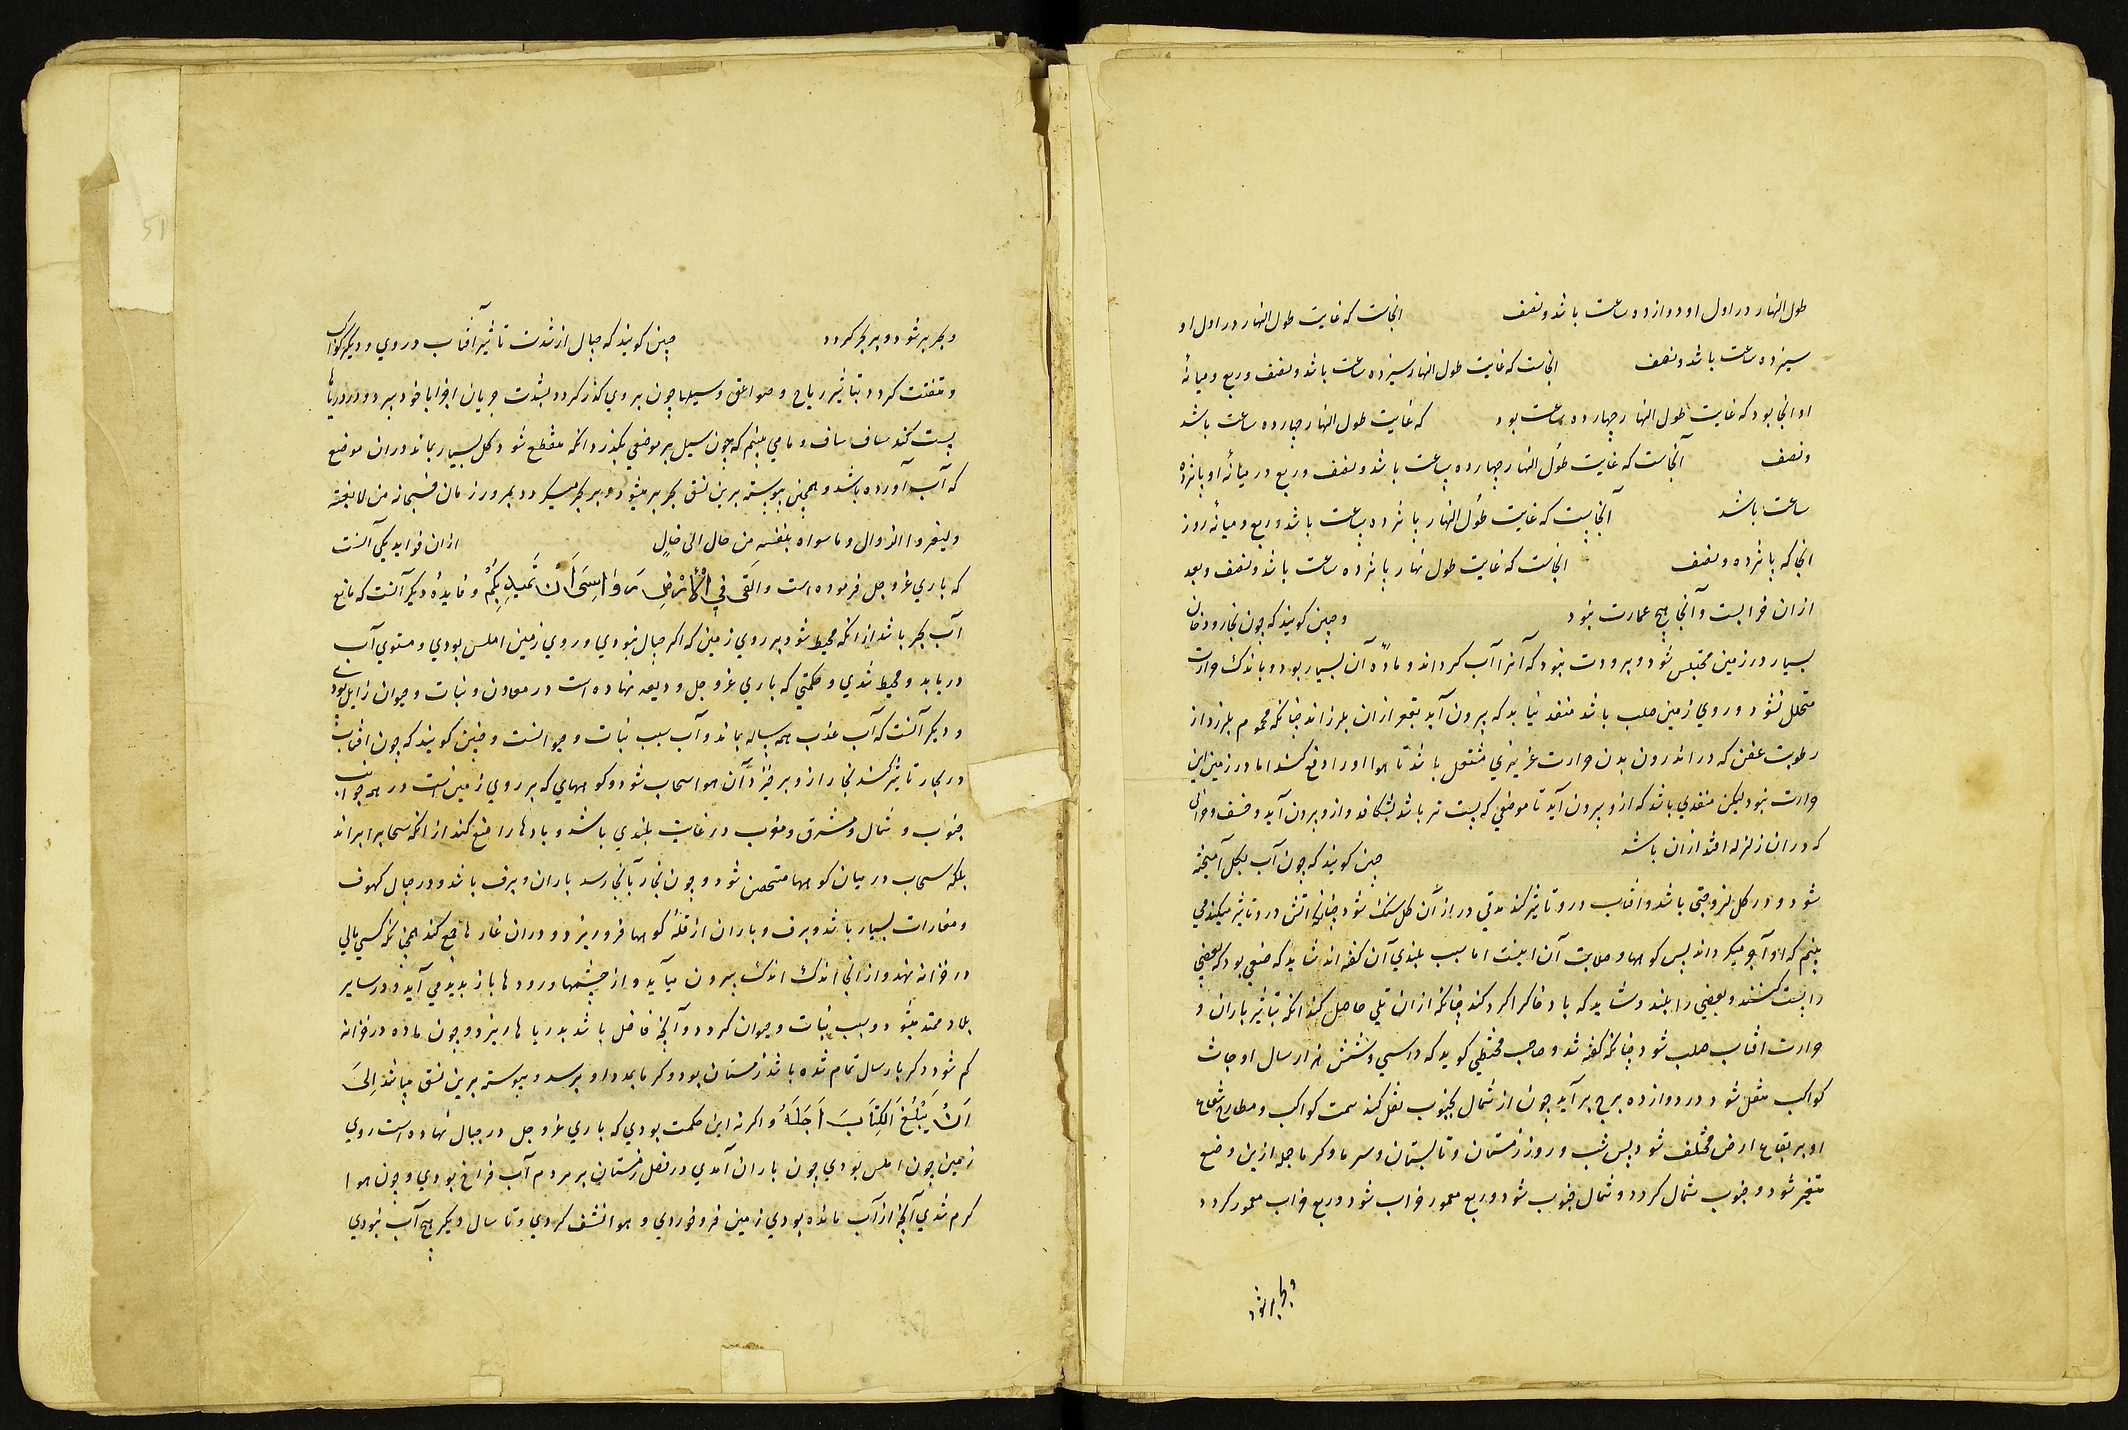 طول النهار در اول او دوازده ساعت باشد و نصف انجاست که غایت طول النهار در اول او
سیزده ساعت باشد و نصف انجاست که غایت طول النهار سیزده ساعت باشد و نصف و ربع و میانهٔ
او انجا بود که غایت طول النهار چهارده ساعت بود که غایت طول النهار چهارده ساعت باشد
و نصف آنجاست که غایت طول النهار چهارده ساعت باشد و نصف و ربع در میانهٔ او پانزده
ساعت باشد آنجاست که غایت طول النهار پانزده ساعت باشد و ربع و میانهٔ روز
انجا که پانزده و نصف انجاست که غایت طول نهار پانزده ساعت باشد و نصف و بعد
ازان خرابست و آنجا هیچ عمارت نبود و چنین کویند که چون بخار و دخان
بسیار در زمین محتبس شود و برودت نبود که آنرا آب کرداند و مادّه آن بسیار بود و باندک حرارت
متحلل نشود و روی زمین صلب باشد منفذ نیابد که بیرون آید بقعر ازان بلرزاند چنانکه محموم بلرزد از
رطوبت عفن که در اندرون بدن حرارت غریزی مشتعل باشد تا هوا او را دفع کند اما در زمین این
حرارت نبود لیکن منفذی باشد که ازو بیرون آید تا موضعی که پست تر باشد بشکافد و ازو بیرون آید و خسف و خرابی
که دران زلزله افتد ازان باشد چنین کویند که چون آب بکل آمیخته
شود و در کل لزوجتی باشد و افتاب درو تاثیر کند مدتی دراز آن کل سنک شود چنانکه اتش درو تاثیر میکند می
بینم که او آجر میکرداند پس کوهها و صلابت آن اینست اما سبب بلندی آن کفته اند شاید که خسفی بود که بعضی
را پست کند و بعضی را بلند و شاید که باد خاکرا کرد کند چنانکه ازان تلی حاصل کند انکه بتاثیر باران و
حرارت افتاب صلب شود چنانکه کفته شد و صاحب مجسطی کوید که در سی و شش هزار سال اوجات
کواکب منتقل شود در دوازده برج برآید چون از شمال بجنوب نقل کند سمت کواکب و مطارح شعاع
او بر بقاع ارض مختلف شود پس شب و روز و زمستان و تابستان و سرما و کرما جمله ازین وضع
متغیر شود و جنوب شمال کردد و شمال جنوب شود و ربع معمور خراب شود و ربع خراب معمور کردد
و بحر بر شود
و بحر بر شود و بر بحر کردد چنین کویند که جبال از شدت تاثیر آفتاب در وی و دیکر کواکب
و متفتت کردد بتاثیر ریاح و صواعق و سیلها چون بروی کذر کردد بشدت جریان اجزا با خود ببرد و در دریاها
پست کند ساف ساف و ما می بینم که چون سیل بر موضعی بکذرد انکه منقطع شود کل بسیار بماند دران موضع
که آب آورده باشد و همچنین پیوسته برین نسق بحر بر میشود و بر بحر میکردد بمرور زمان فسبحانه من لا یغیره
و لیغیر و الزوال و ما سواه بنفسه من حال الی حال ازان فواید یکی آنست
که باری عز و جل فرموده است و القی فی الارض رواسی ان تمید بکم و فایدهٔ دیکر آنست که مانع
آب بحر باشد از انکه محیط شود بر روی زمین که اکر جبال نبودی و روی زمین املس بودی و مستوی آب
دریا بد و محیط شدی و حکمتی که باری عز و جل ودیعه نهاده است در معادن و نبات و حیوان زایل بودی
و دیکر آنست که آب عذب همه ساله بماند و آب سبب نبات و حیوانست و چنین کویند که چون افتاب
در بحار تاثیر کند بخار ازو برخیزد آن هوا سحاب شود و کوههای که بر روی زمین است در همه جوانب
جنوب و شمال و مشرق و مغرب در غایت بلندی باشد و بادها را منع کند از انکه سحابرا براند
بلکه سحاب در میان کوهها متحصن شود و چون بخار بآنجا رسد باران و برف باشد و در جبال کهوف
و مغارات بسیار باشد و برف و باران از قلهٔ کوهها فرو ریزد و دران غارها جمع کند همچنانکه کسی مالی
در خزانه نهد و از انجا اندک اندک بیرون میآید و از چشمها و رودها باز پدید می آید و در سایر
بلاد ممتد میشود و سبب نبات و حیوان کردد و آنچه فاضل باشد بدریاها ریزد و چون ماده در خزانه
کم شود دکر بار سال تمام شده باشد زمستان بود و کر ما بمدد او برسد و پیوسته برین نسق میباشد الی
ان یبلغ الکتاب اجله و اکر نه این حکمت بودی که باری عز و جل در جبال نهاده است روی
زمین چون املس بودی چون باران آمدی در فصل زمستان بر مردم آب فراخ بودی و چون هوا
کرم شدی آنچه از آب مانده بودی زمین فرو خوردی و هوا نشف کردی و تا سال دیکر هیچ آب نبودی